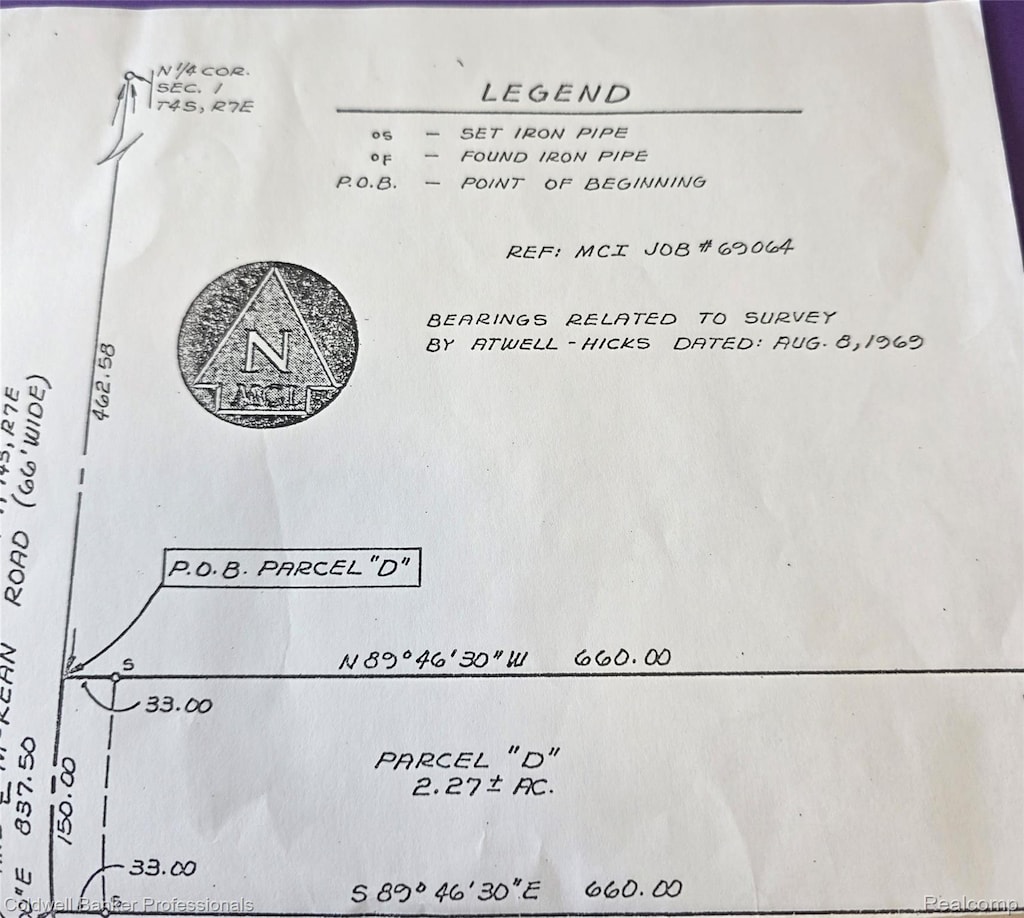 N 1/4 COR.
SEC. 1
T4S, R7E
LEGEND
os — SET IRON PIPE
oF — FOUND IRON PIPE
P.O.B. — POINT OF BEGINNING
REF: MCI JOB # 69064
BEARINGS RELATED TO SURVEY
BY ATWELL - HICKS DATED: AUG. 8, 1969
N
MCI
462.58
T4S, R7E
ROAD (66' WIDE)
P.O.B. PARCEL "D"
S
N 89° 46' 30" W 660.00
33.00
PARCEL "D"
2.27 ± AC.
150.00
"E 837.50
33.00
S
S 89° 46' 30" E 660.00
Coldwell Banker Professionals
Realcomp